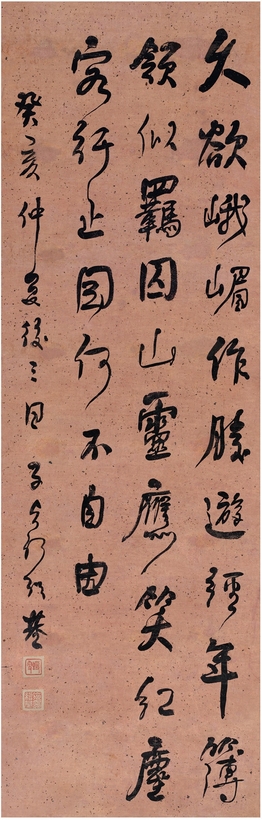 久欲峨嵋作勝遊經年簿
領似羈囚山靈應笑紅塵
客行止因何不自由
癸亥仲夏後三日